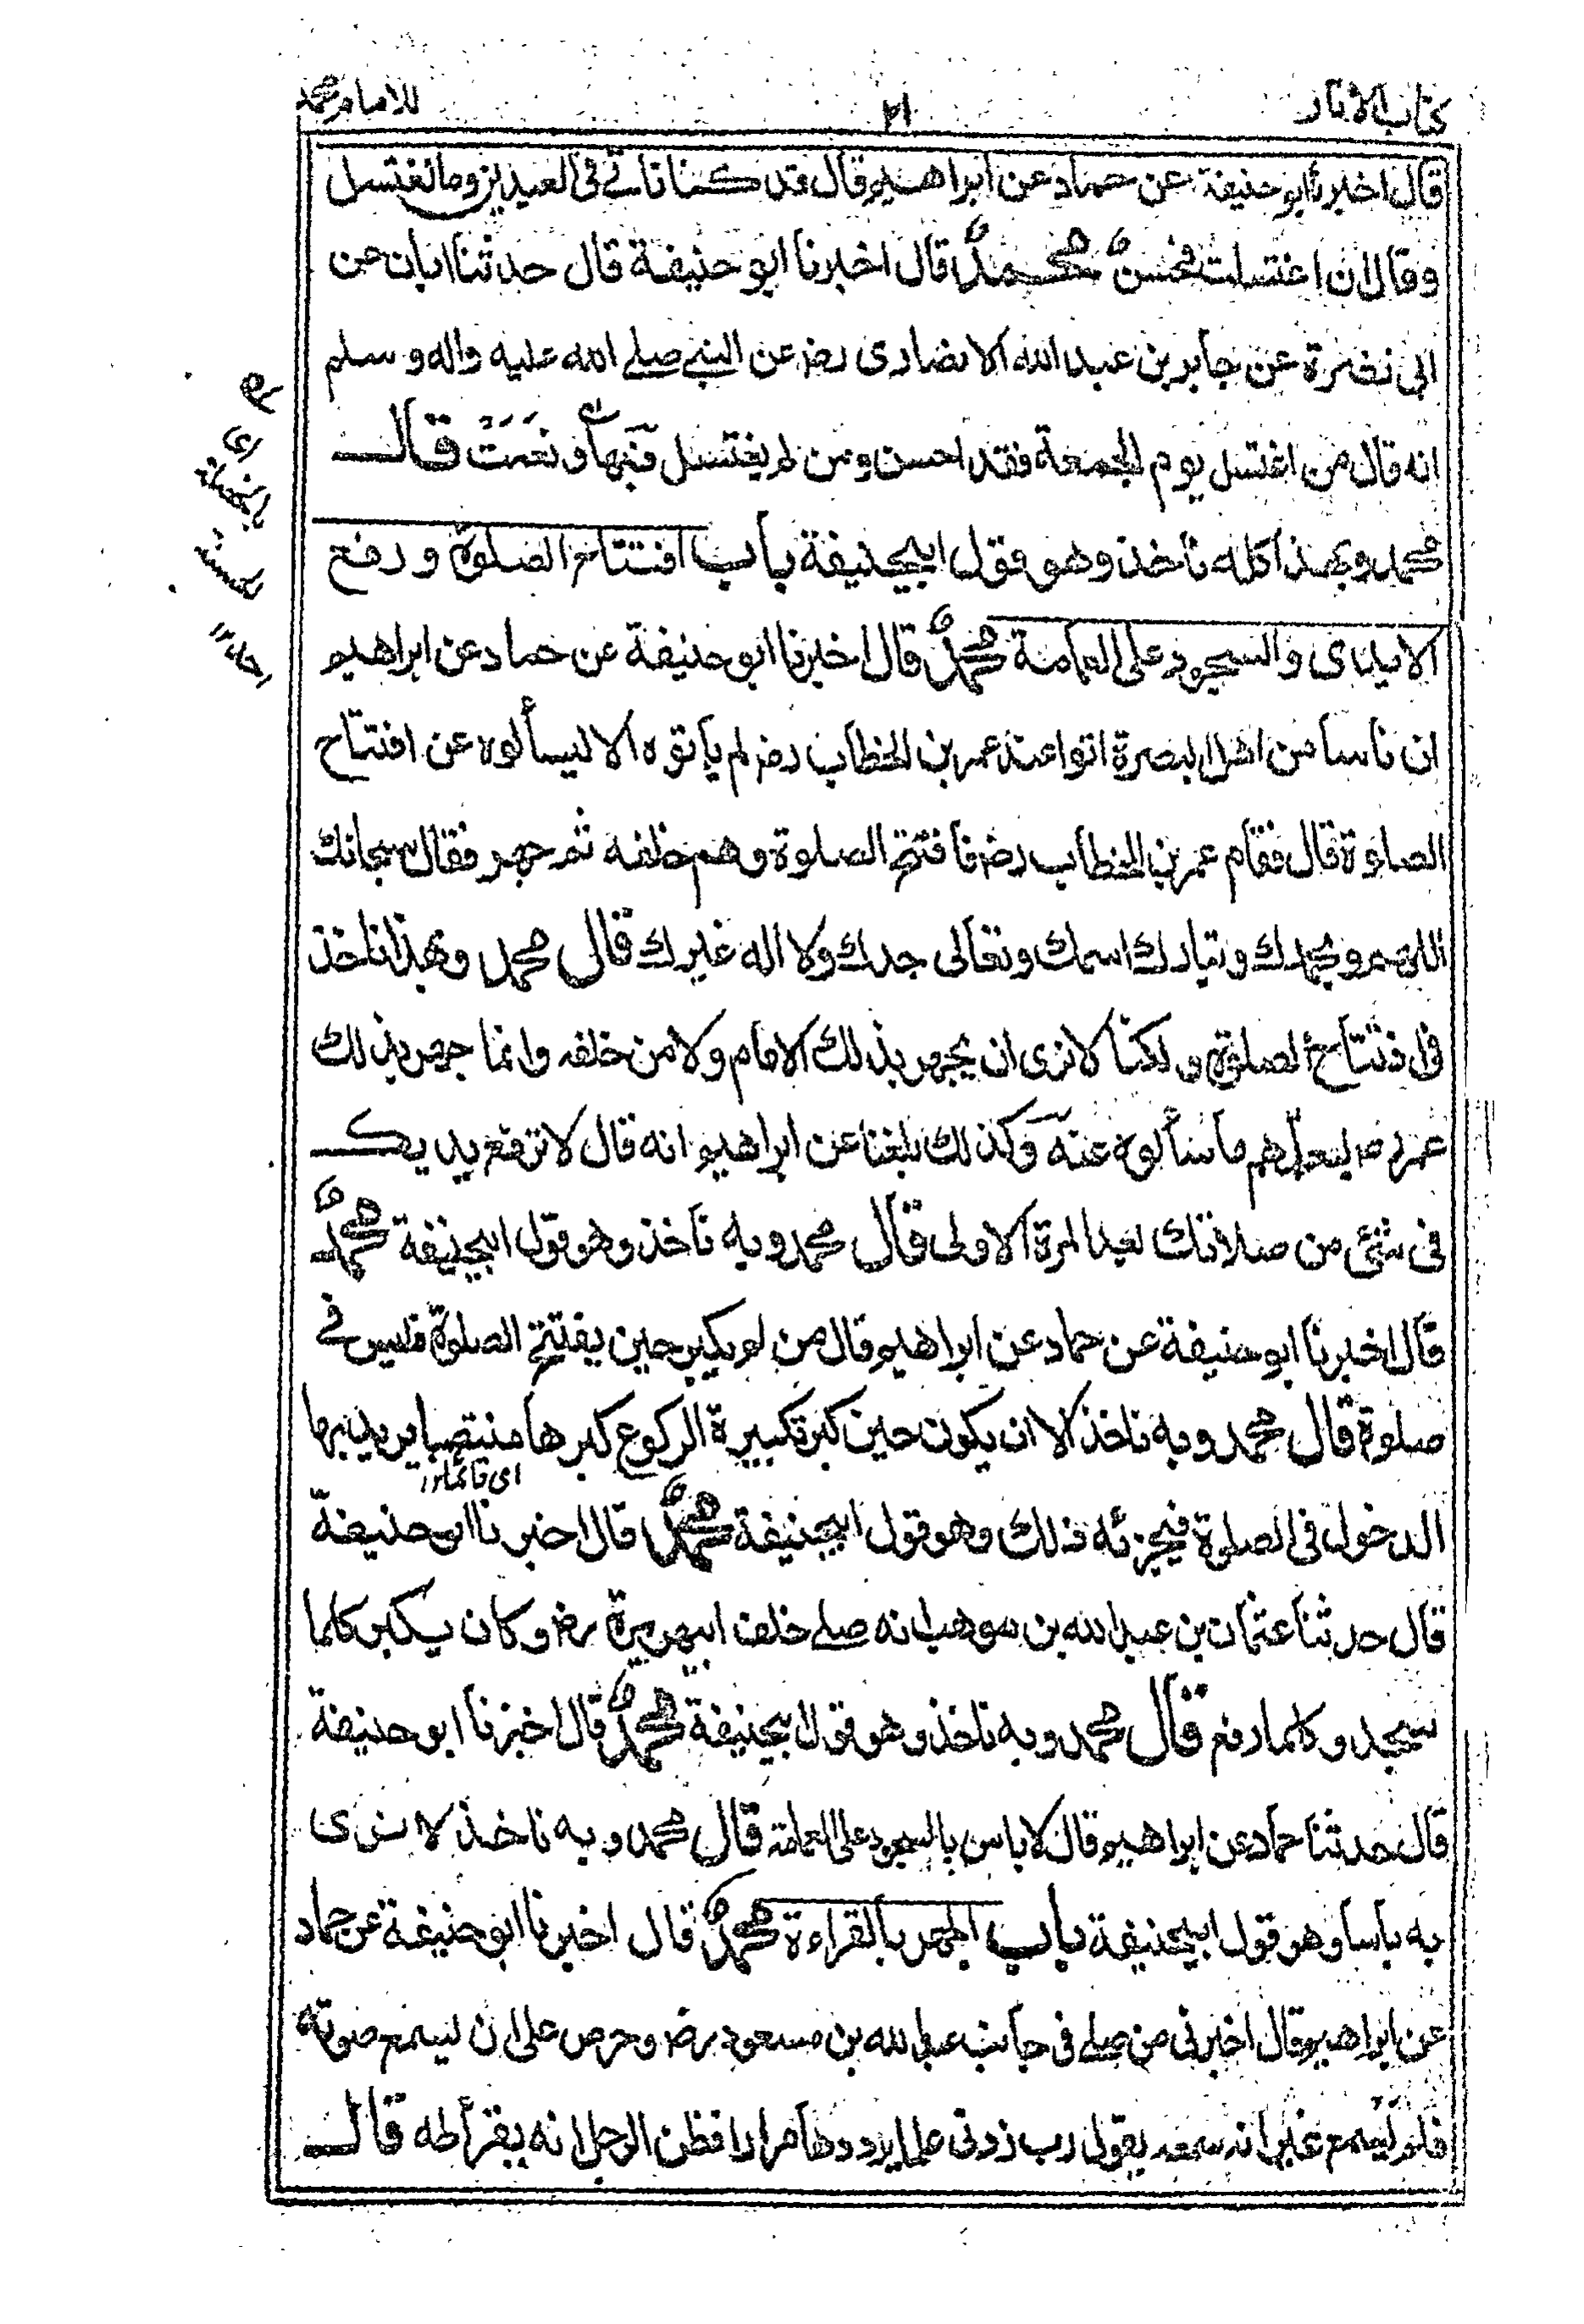 كتاب الاثار ٢١ للامام محمد
قال اخبرنا ابو حنيفة عن حماد عن ابراهيم قال قد كنا ناتي في العيدين وما نغتسل
وقال ان اغتسلت فحسن محمد قال اخبرنا ابو حنيفة قال حدثنا ابان عن
ابى نضرة عن جابر بن عبد الله الانصارى رضـ عن النبي صلے الله عليه واله وسلم
انه قال من اغتسل يوم الجمعة فقد احسن ومن لم يغتسل فبها ونعمت قال
محمد وبهذا كله ناخذ وهو قول ابيحنيفة باب افتتاح الصلوة ورفع
الايدى والسجود على العمامة محمد قال اخبرنا ابو حنيفة عن حماد عن ابراهيم
ان ناسا من اهل البصرة اتوا عند عمر بن الخطاب رضـ لم ياتوه الا ليسألوه عن افتتاح
الصلوة قال فقام عمر بن الخطاب رضـ فافتتح الصلوة وهم خلفه ثم جهر فقال سبحانك
اللهم وبحمدك وتبارك اسمك وتعالى جدك ولا اله غيرك قال محمد وبهذا ناخذ
فى افتتاح الصلوة ولكنا لا نرى ان يجهر بذلك الامام ولا من خلفه وانما جهر بذلك
عمر رضـ ليعلمهم ما سألوه عنه وكذلك بلغنا عن ابراهيم انه قال لا ترفع يديك
فى شئ من صلاتك بعد المرة الاولى قال محمد وبه ناخذ وهو قول ابيحنيفة محمد
قال اخبرنا ابو حنيفة عن حماد عن ابراهيم قال من لم يكبر حين يفتتح الصلوة فليس في
صلوة قال محمد وبه ناخذ الا ان يكون حين كبر تكبيرة الركوع كبرها منتصبا يريد بها
اى قائما ١٢
الدخول فى الصلوة فيجزئه ذلك وهو قول ابيحنيفة محمد قال اخبرنا ابو حنيفة
قال حدثنا عثمان بن عبد الله بن موهب انه صلے خلف ابيهريرة رضـ وكان يكبر كلما
سجد وكلما رفع قال محمد وبه ناخذ وهو قول ابيحنيفة محمد قال اخبرنا ابو حنيفة
قال حدثنا حماد عن ابراهيم قال لا باس بالسجود على العمامة قال محمد وبه ناخذ لا نرى
به بأسا وهو قول ابيحنيفة باب الجهر بالقراءة محمد قال اخبرنا ابو حنيفة عن حماد
عن ابراهيم قال اخبرنى من صلے فى جانب عبد الله بن مسعود رضـ وحرص على ان يسمع صوته
فلم يسمع غير انه سمعه يقول رب زدنى علما يرددها مرارا فظن الرجل انه يقرأ طه قال